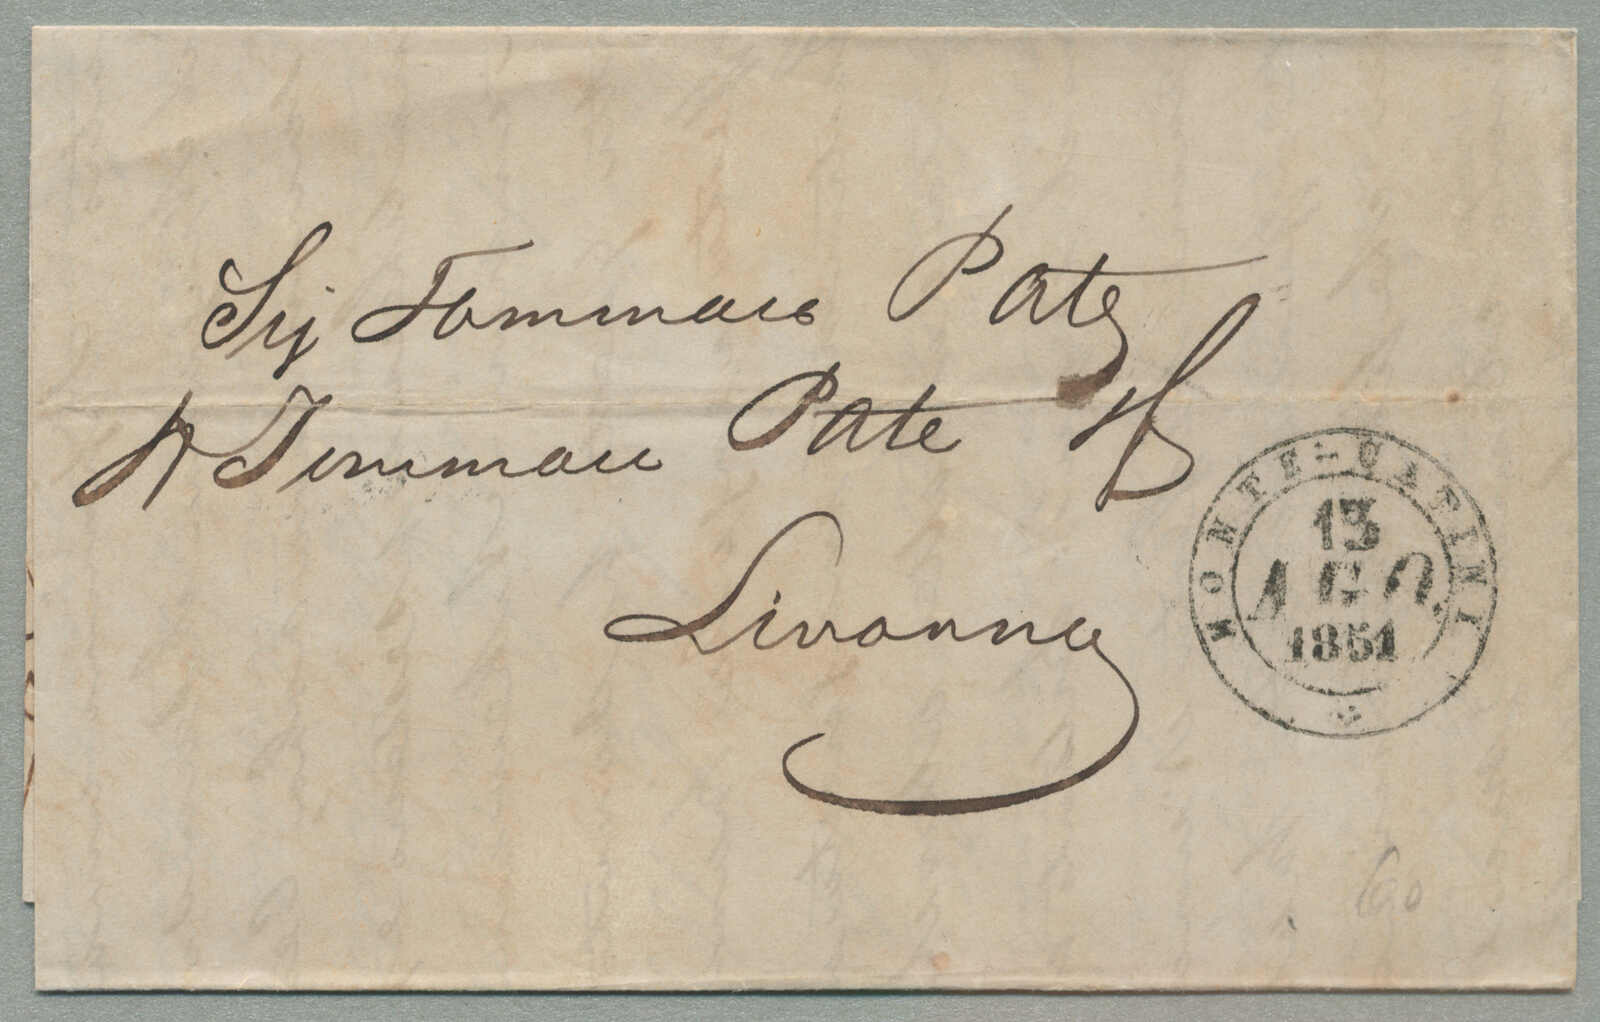 Sig Tommaso Pate
Tommaso Pate
Livorno
MONTE-CATINI
13
AGO.
1851
60